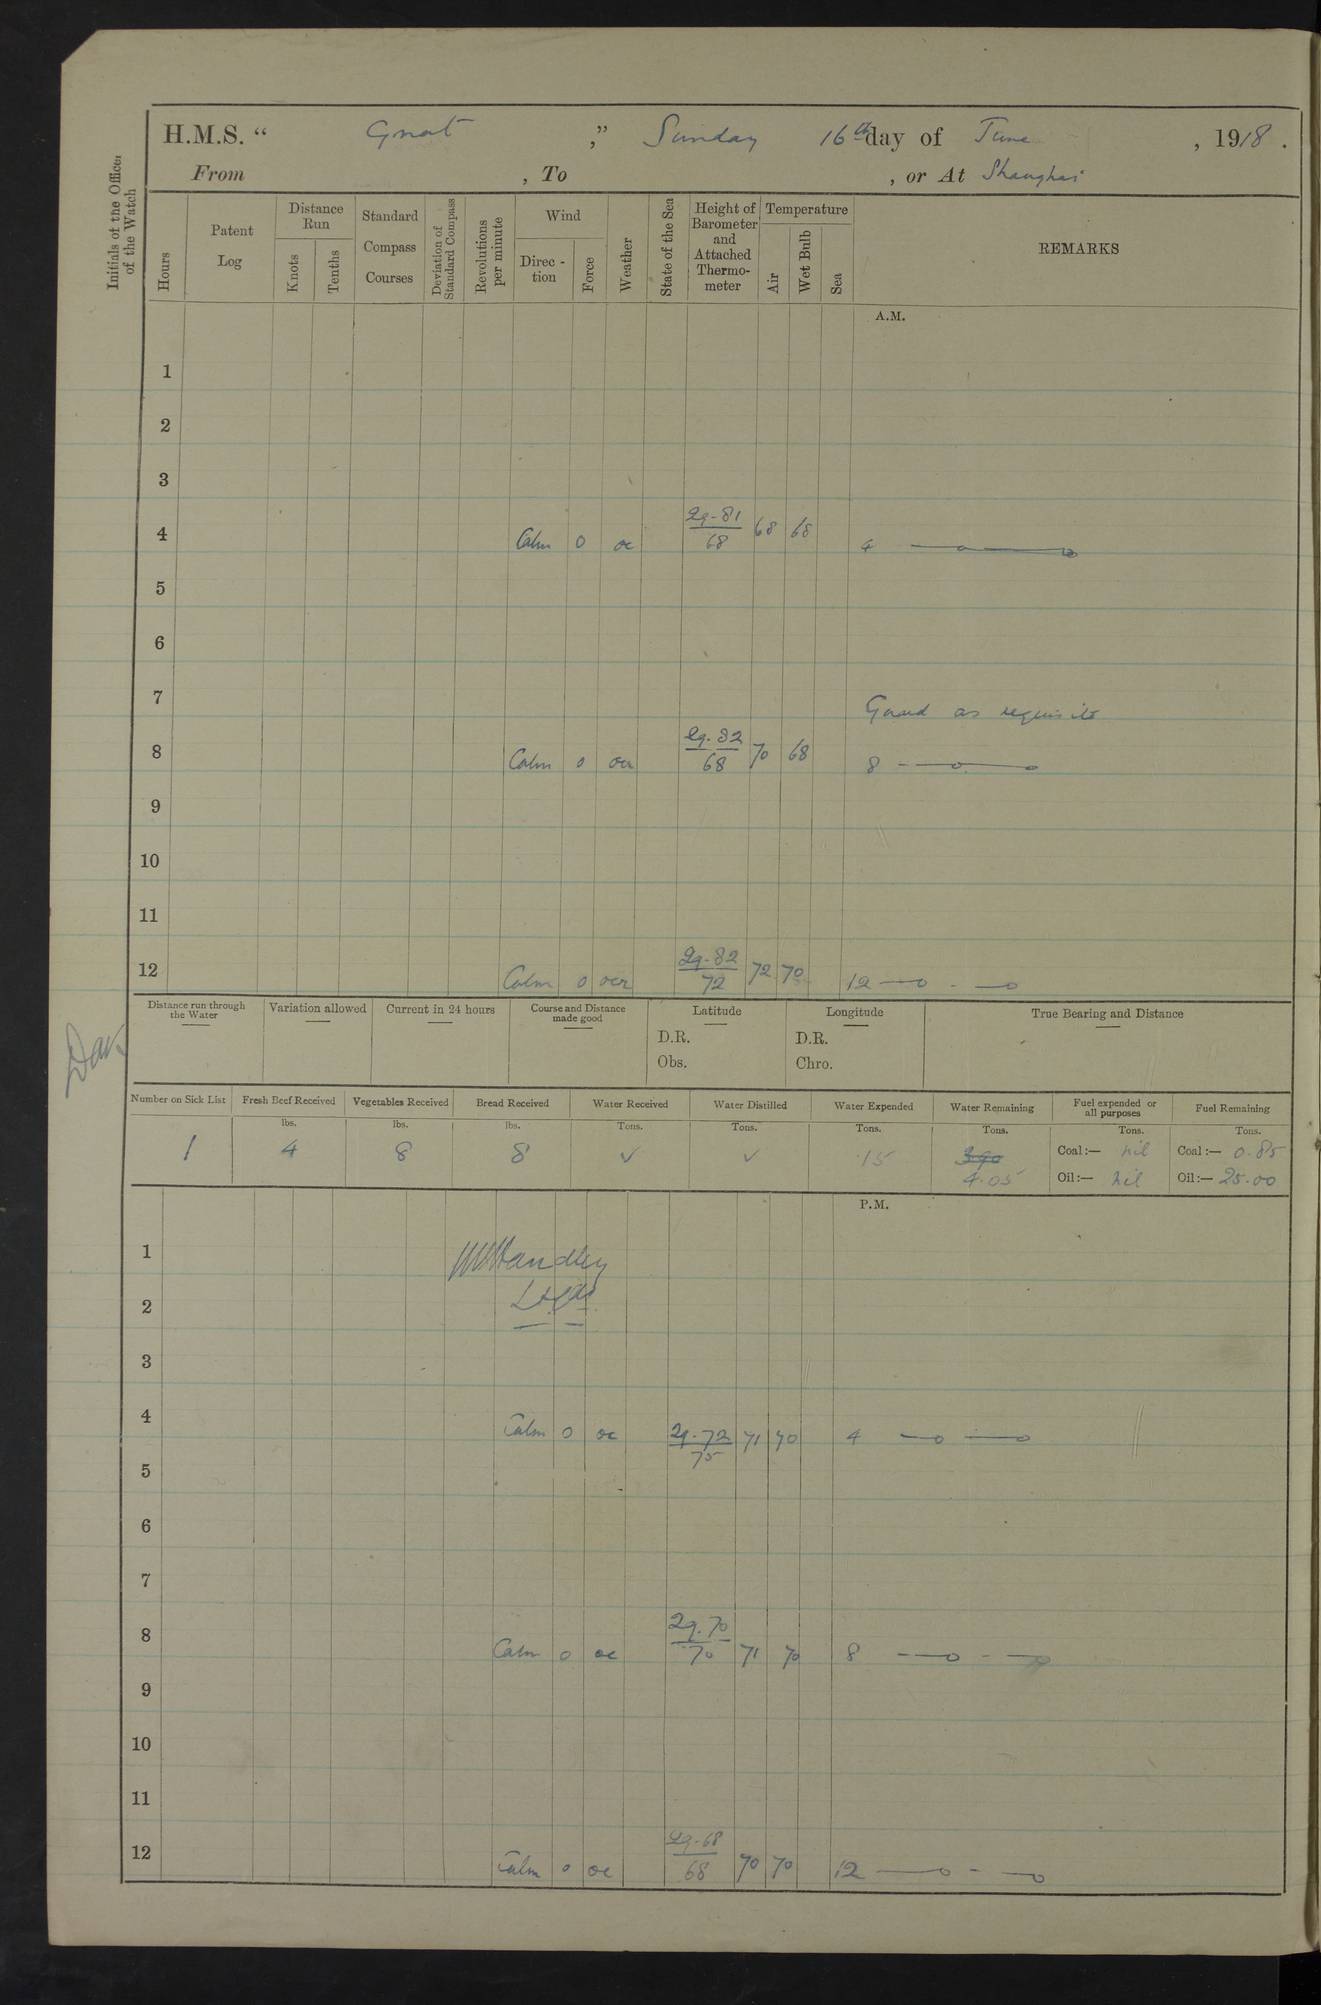 H.M.S. “ Gnat ,” Sunday 16th day of June , 1918 .
From , To , or At Shanghai
Initials of the Officer of the Watch
Hours
Patent Log
Distance Run
Knots
Tenths
Standard Compass Courses
Deviation of Standard Compass
Revolutions per minute
Wind
Direc-tion
Force
Weather
State of the Sea
Height of Barometer and Attached Thermo-meter
Temperature
Air
Wet Bulb
Sea
REMARKS
A.M.
1
2
3
4 Calm 0 oc 29.81/68 68 68 4
5
6
7 Guard as requisite
8 Calm 0 ocr 29.82/68 70 68 8
9
10
11
12 Calm 0 ocr 29.82/72 72 70 12
Distance run through the Water
Variation allowed
Current in 24 hours
Course and Distance made good
Latitude
D.R.
Obs.
Longitude
D.R.
Chro.
True Bearing and Distance
Number on Sick List 1
Fresh Beef Received lbs. 4
Vegetables Received lbs. 8
Bread Received lbs. 8
Water Received Tons. ✓
Water Distilled Tons. ✓
Water Expended Tons. .15
Water Remaining Tons. 3.90 4.05
Fuel expended or all purposes Tons.
Coal:— nil
Oil:— nil
Fuel Remaining Tons.
Coal:— 0.85
Oil:— 25.00
P.M.
1 Handley
2
3
4 Calm 0 oc 29.72/75 71 70 4
5
6
7
8 Calm 0 oc 29.70/70 71 70 8
9
10
11
12 Calm 0 oc 29.68/68 70 70 12